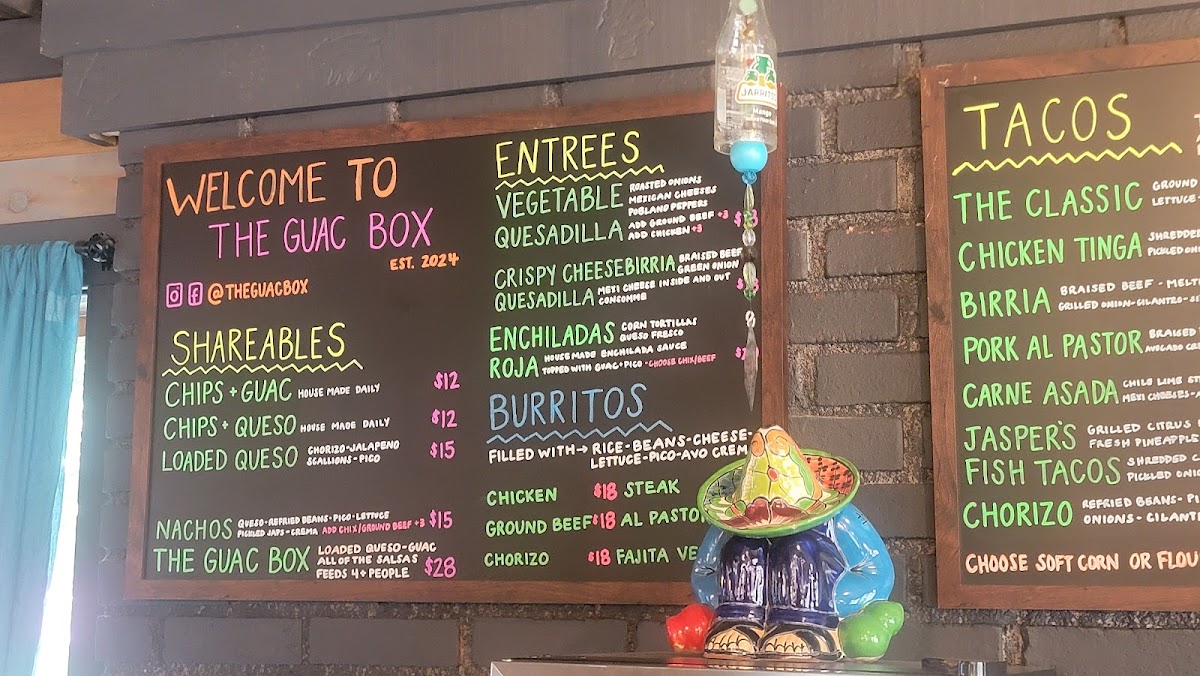 WELCOME TO
THE GUAC BOX
EST. 2024
@THEGUACBOX
SHAREABLES
CHIPS + GUAC HOUSE MADE DAILY $12
CHIPS + QUESO HOUSE MADE DAILY $12
LOADED QUESO CHORIZO-JALAPENO $15
SCALLIONS-PICO
NACHOS QUESO-REFRIED BEANS-PICO-LETTUCE $15
PICKLED JAPS-CREMA ADD CHIX/GROUND BEEF +3
THE GUAC BOX LOADED QUESO-GUAC
ALL OF THE SALSAS
FEEDS 4+ PEOPLE $28
ENTREES
VEGETABLE ROASTED ONIONS
MEXICAN CHEESES
POBLANO PEPPERS
QUESADILLA ADD GROUND BEEF +3
ADD CHICKEN +3
CRISPY CHEESEBIRRIA BRAISED BEEF
GREEN ONION
QUESADILLA MEXI CHEESE INSIDE AND OUT
CONSOMME
ENCHILADAS CORN TORTILLAS
QUESO FRESCO
ROJA HOUSE MADE ENCHILADA SAUCE
TOPPED WITH GUAC+PICO-CHOOSE CHIX/BEEF
BURRITOS
FILLED WITH→ RICE-BEANS-CHEESE-
LETTUCE-PICO-AVO CREM
CHICKEN $18 STEAK
GROUND BEEF $18 AL PASTOR
CHORIZO $18 FAJITA VE
JARRITOS
Mango
TACOS
THE CLASSIC GROUND
LETTUCE-
CHICKEN TINGA SHREDDED
PICKLED ONI
BIRRIA BRAISED BEEF-MELT
GRILLED ONION-CILANTRO-
PORK AL PASTOR BRAISED
AVOCADO CRE
CARNE ASADA CHILO LIME ST
MEXI CHEESES-
JASPER'S GRILLED CITRUS
FRESH PINEAPPLE
FISH TACOS SHREDDED C
PICKLED ONIO
CHORIZO REFRIED BEANS-PI
ONIONS-CILANT
CHOOSE SOFT CORN OR FLOU